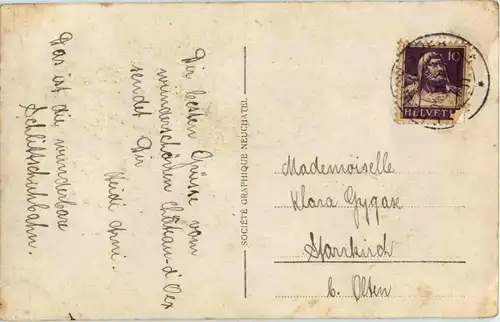 Das ist die wunderbare
Schlittschuhbahn.
Die besten Grüsse vom
wunderschönen Château-d'Oex
sendet Dir
Heidi Arni.
SOCIÉTÉ GRAPHIQUE NEUCHATEL
10
HELVETIA
Mademoiselle
Klara Gygax
Starrkirch
b. Olten